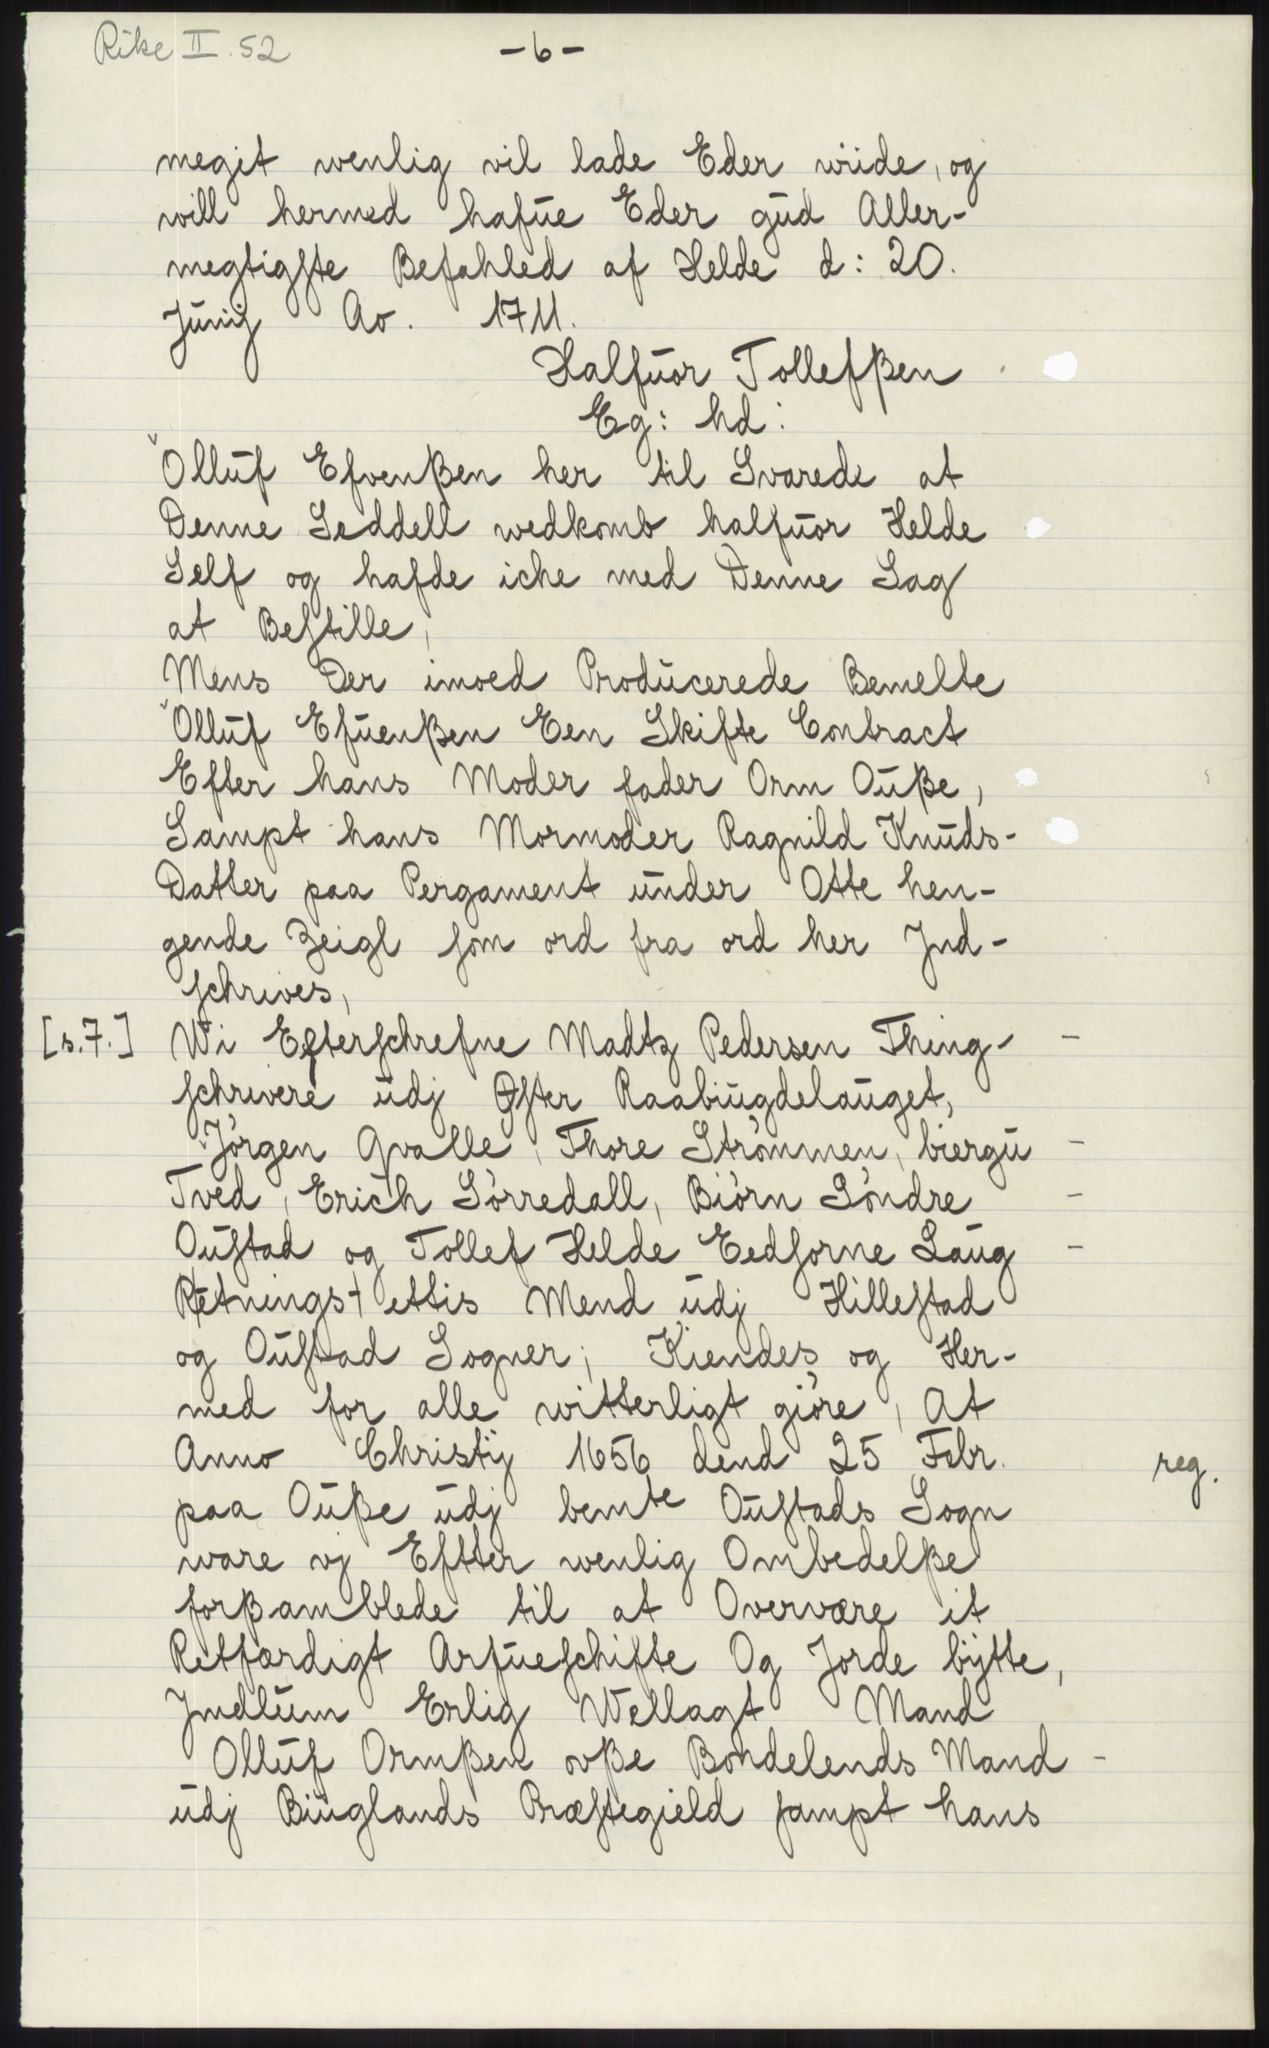 Rike II. 52
- 6 -
megit wenlig vil lade Eder wiide, og
will hermed hafue Eder gud Aller-
megtigste Befahled af Helde d: 20.
Junij Ao. 1711.
Halfuor Tollefßen
Eg: hd:
Olluf Efvenßen her til Svarede at
Denne Seddell wedkomb halfuor Helde
Self og hafde iche med Denne Sag
at Bestille,
Mens Der imoed Producerede Bemelte
Olluf Efuenßen Een Skifte Contract
Efter hans Moder fader Orm Oußе,
Sampt hans Mormoder Ragnild Knuds-
Datter paa Pergament under Otte hen-
gende Zeigl som ord fra ord her Ind-
schrives,
[s.7.] Wi Efterschrefne Madtz Pedersen Thing-
schrivere udj Øster Raabiugdelauget,
Jørgen Qvalle, Thore Strømmen, biergu
Tved, Erich Sørredall, Biørn Søndre
Oustad og Tollef Helde Eedsorne Laug
Retnings-ettis Mend udj Hillestad
og Oustad Sogner; Kiendes og Her-
med for alle witterligt giøre, At
Anno Christÿ 1656 dend 25 Febr.
reg.
paa Ouße udj bemte Oustads Sogn
ware vj Eftter wenlig Ombedelße
forßamblede til at Overvære it
Retfærdigt Arfueschifte Og Jorde bÿtte,
Imellum Erlig Wellagt Mand
Olluf Ormßen ovße Bondelends Mand
udj Biuglands Præstegield sampt hans